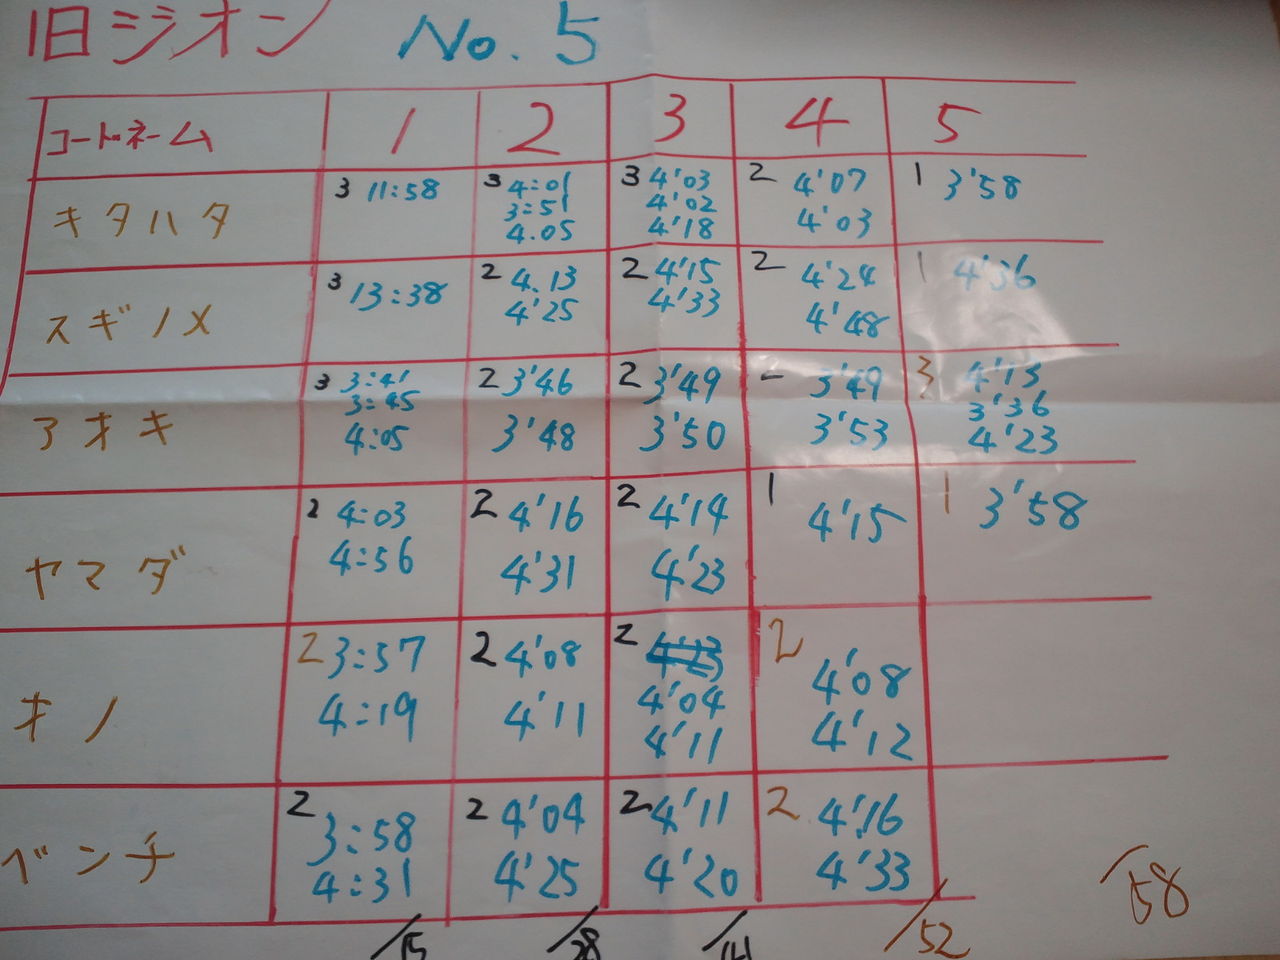 旧ジオン No.5
コードネーム 1 2 3 4 5
キタハタ 3 11:58 3 4:01 3 4'03 2 4'07 1 3'58
3:51 4'02 4'03
4.05 4'18
スギノメ 3 13:38 2 4.13 2 4'15 2 4'24 1 4'36
4'25 4'33 4'48
アオキ 3 3:41 2 3'46 2 3'49 3'49 3 4'13
3:45 3'36
4:05 3'48 3'50 3'53 4'23
ヤマダ 2 4:03 2 4'16 2 4'14 1 4'15 1 3'58
4:56 4'31 4'23
キノ 2 3:57 2 4'08 2 2 4'08
4:19 4'11 4'04 4'12
4'11
ベンチ 2 3:58 2 4'04 2 4'11 2 4'16
4:31 4'25 4'20 4'33
/15 /28 /41 /52 /58